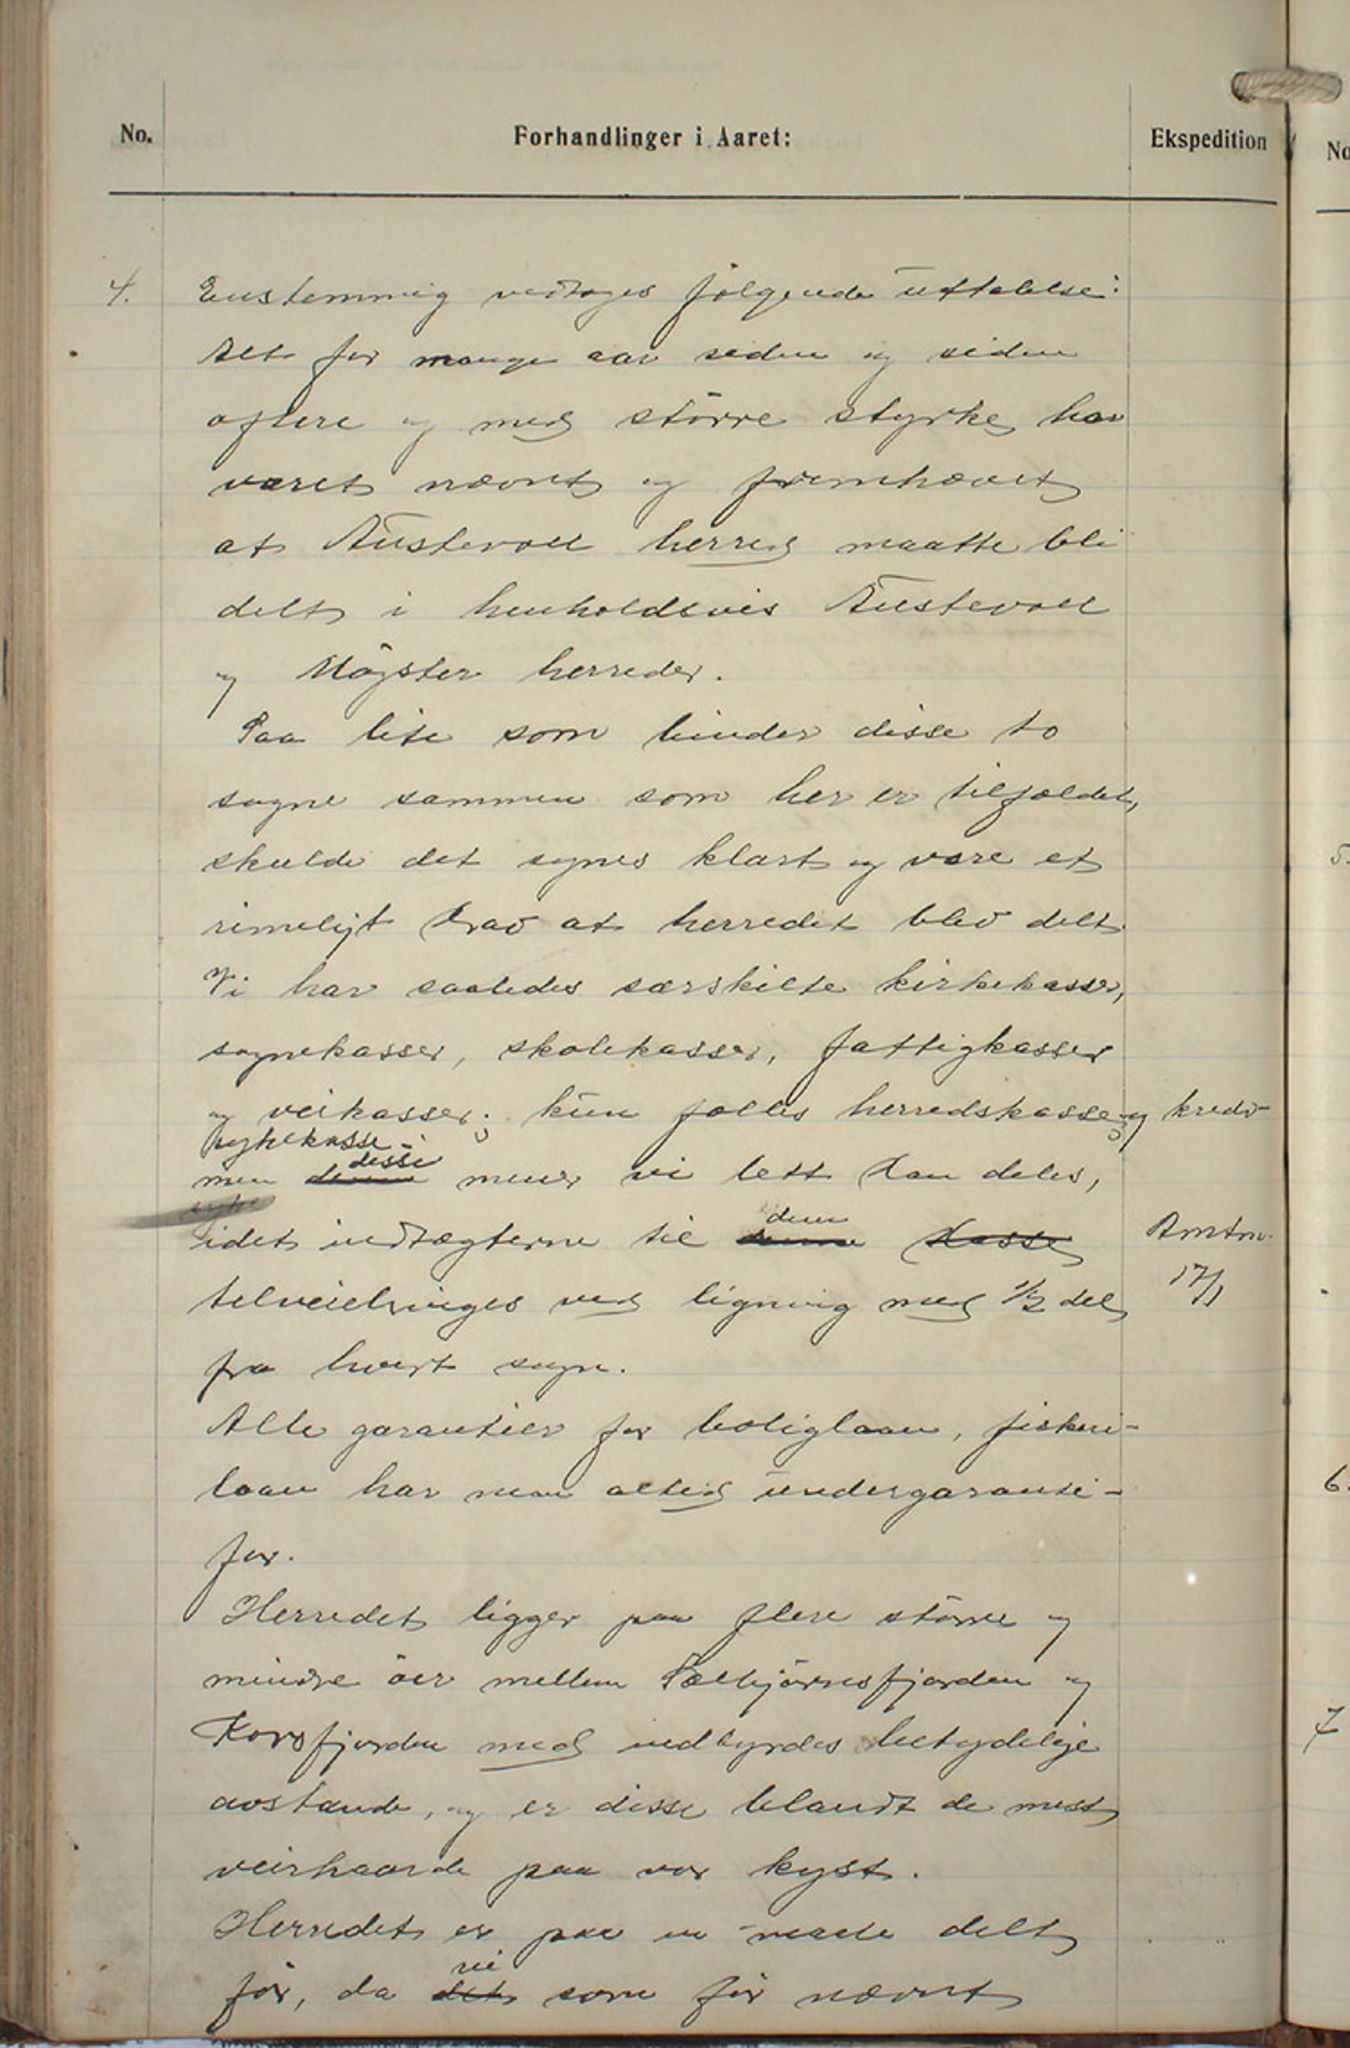 No. Forhandlinger i Aaret: Ekspedition No
4. Enstemmig vedtages følgende uttalelse:
Alt for mange aar siden og siden
oftere og med större styrke har
været nævnt og fremhævet
at Austevoll herred maatte bli
delt i henholdsvis Austevoll
og Mögster herreder.
Saa lite som binder disse to
sogne sammen som her er tilfældet,
skulde det synes klart og være et
rimeligt krav at herredet blev delt.
Vi har saaledes særskilte kirkekasser,
sognekasser, skolekasser, fattigkasser
og veikasser; kun fælles herredskasse og kreds-
sykekasse
men denne disse mener vi lett kan deles,
syke
idet indtægterne til denne dem kasse Amtm.
tilveiebringes ved ligning med 1/2 del 17/1
fra hvert sogn.
Alle garantier for boliglaan, fiskeri-
laan har man altid undergaranti-
for.
Herredet ligger paa flere større og
mindre öer mellem Sælbjörnsfjorden og
Korsfjorden med indbyrdes betydelige
avstande, og er disse blandt de mest
veirhaarde paa vor kyst.
Herredet er paa en maate delt
før, da det vi som för nævnt
5.
6.
7